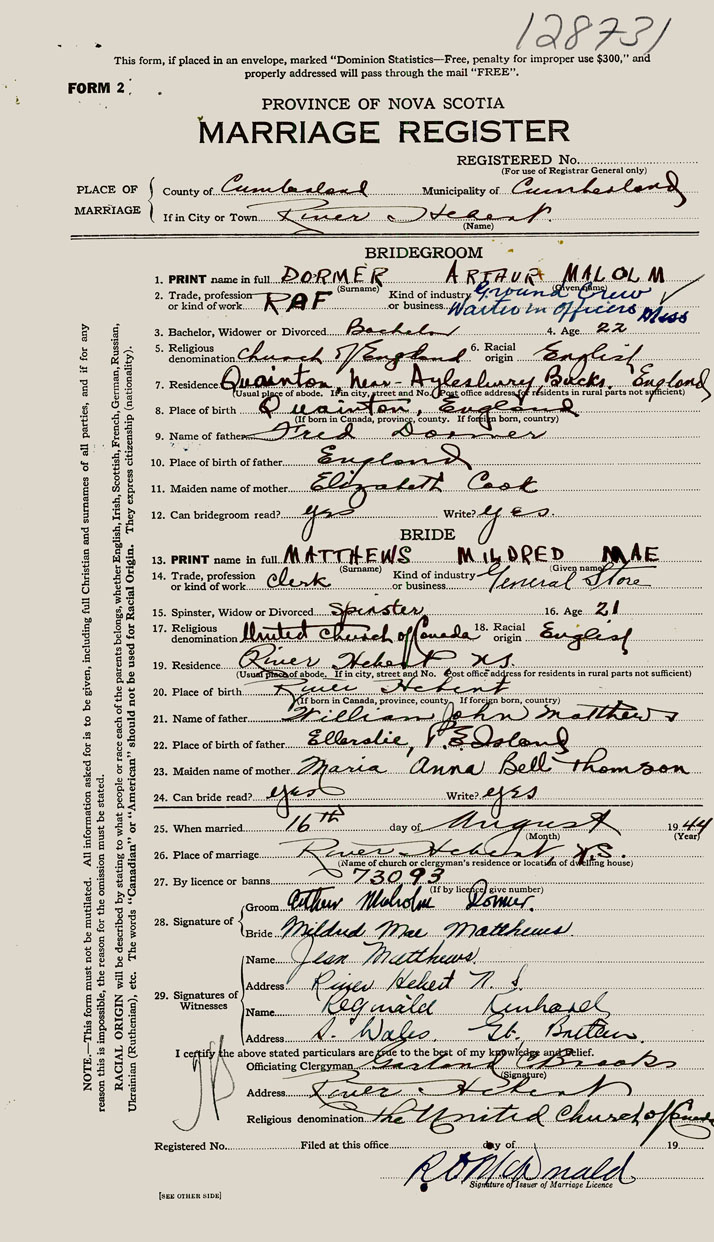 128731
This form, if placed in an envelope, marked "Dominion Statistics—Free, penalty for improper use $300," and
properly addressed will pass through the mail "FREE".
FORM 2
PROVINCE OF NOVA SCOTIA
MARRIAGE REGISTER
REGISTERED No.
(For use of Registrar General only)
PLACE OF MARRIAGE
County of Cumberland Municipality of Cumberland
If in City or Town River Hebert
(Name)
BRIDEGROOM
1. PRINT name in full DORMER ARTHUR MALOLM
(Surname) (Given name)
2. Trade, profession or kind of work RAF Kind of industry or business Ground Crew
Waiter in Officers Mess
3. Bachelor, Widower or Divorced Bachelor 4. Age 22
5. Religious denomination Church of England 6. Racial origin English
7. Residence Quainton, Near-Aylesbury, Bucks. England
(Usual place of abode. If in city, street and No. Post office address for residents in rural parts not sufficient)
8. Place of birth Quainton, England
(If born in Canada, province, county. If foreign born, country)
9. Name of father Fred Dormer
10. Place of birth of father England
11. Maiden name of mother Elizabeth Cook
12. Can bridegroom read? yes Write? yes.
BRIDE
13. PRINT name in full MATTHEWS MILDRED MAE
(Surname) (Given name)
14. Trade, profession or kind of work Clerk Kind of industry or business General Store
15. Spinster, Widow or Divorced Spinster 16. Age 21
17. Religious denomination United Church of Canada 18. Racial origin English
19. Residence River Hebert NS.
(Usual place of abode. If in city, street and No. Post office address for residents in rural parts not sufficient)
20. Place of birth River Hebert
(If born in Canada, province, county. If foreign born, country)
21. Name of father William John Matthews
22. Place of birth of father Ellerslie, P. E Island
23. Maiden name of mother Maria Anna Bell Thomson
24. Can bride read? yes Write? yes
25. When married 16TH day of August 1944
(Month) (Year)
26. Place of marriage River Hebert, N.S.
(Name of church or clergyman's residence or location of dwelling house)
27. By licence or banns 73093
(If by licence, give number)
28. Signature of
Groom Arthur Malcolm Dormer.
Bride Mildred Mae Matthews.
29. Signatures of Witnesses
Name Jean Matthews.
Address River Hebert N. S.
Name Reginald
Address S. Wales. Gt. Britain.
I certify the above stated particulars are true to the best of my knowledge and belief.
Officiating Clergyman Garland C Brooks
(Signature)
Address River Hebert
Religious denomination The United Church of Canada
Registered No. Filed at this office day of 19
R D McDonald
Signature of Issuer of Marriage Licence
[SEE OTHER SIDE]
NOTE.—This form must not be mutilated. All information asked for is to be given, including full Christian and surnames of all parties, and if for any
reason this is impossible, the reason for the omission must be stated.
RACIAL ORIGIN will be described by stating to what people or race each of the parents belongs, whether English, Irish, Scottish, French, German, Russian,
Ukrainian (Ruthenian), etc. The words "Canadian" or "American" should not be used for Racial Origin. They express citizenship (nationality).